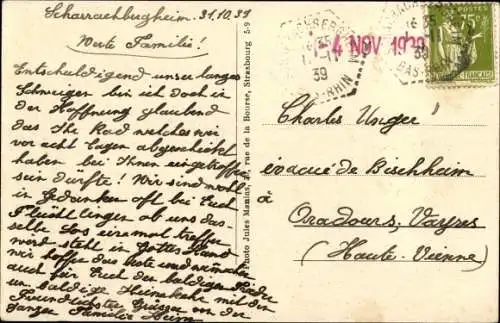 Scharrachbergheim, 31.10.39
Werte Familie!
Entschuldigend unser langes
Schweigen bin ich doch in
der Hoffnung glaubend
das Ihr Rad welches wir
vor acht Tagen abgeschickt
haben bei Ihnen eingetroffen
sein dürfte! Wir sind wohl
in Gedanken oft bei Euch
Flüchtlingen ob uns das-
selbe Los einmal treffen
word steht in Gottes Hand
wir hoffen das beste und wünschen
auch für Euch den baldigen Frieden
u. baldige Heimkehr mit den
Freundlichsten Grüssen von der
ganzen Familie Heim
Photo Jules Manias, rue de la Bourse, Strasbourg 5-9
-4 NOV 1939
39
RHIN
POSTES
75c
FRANÇAISE
BAS-
Charles Unger
évacué de Bischheim
à
Oradours, Vayres
(Haute-Vienne)